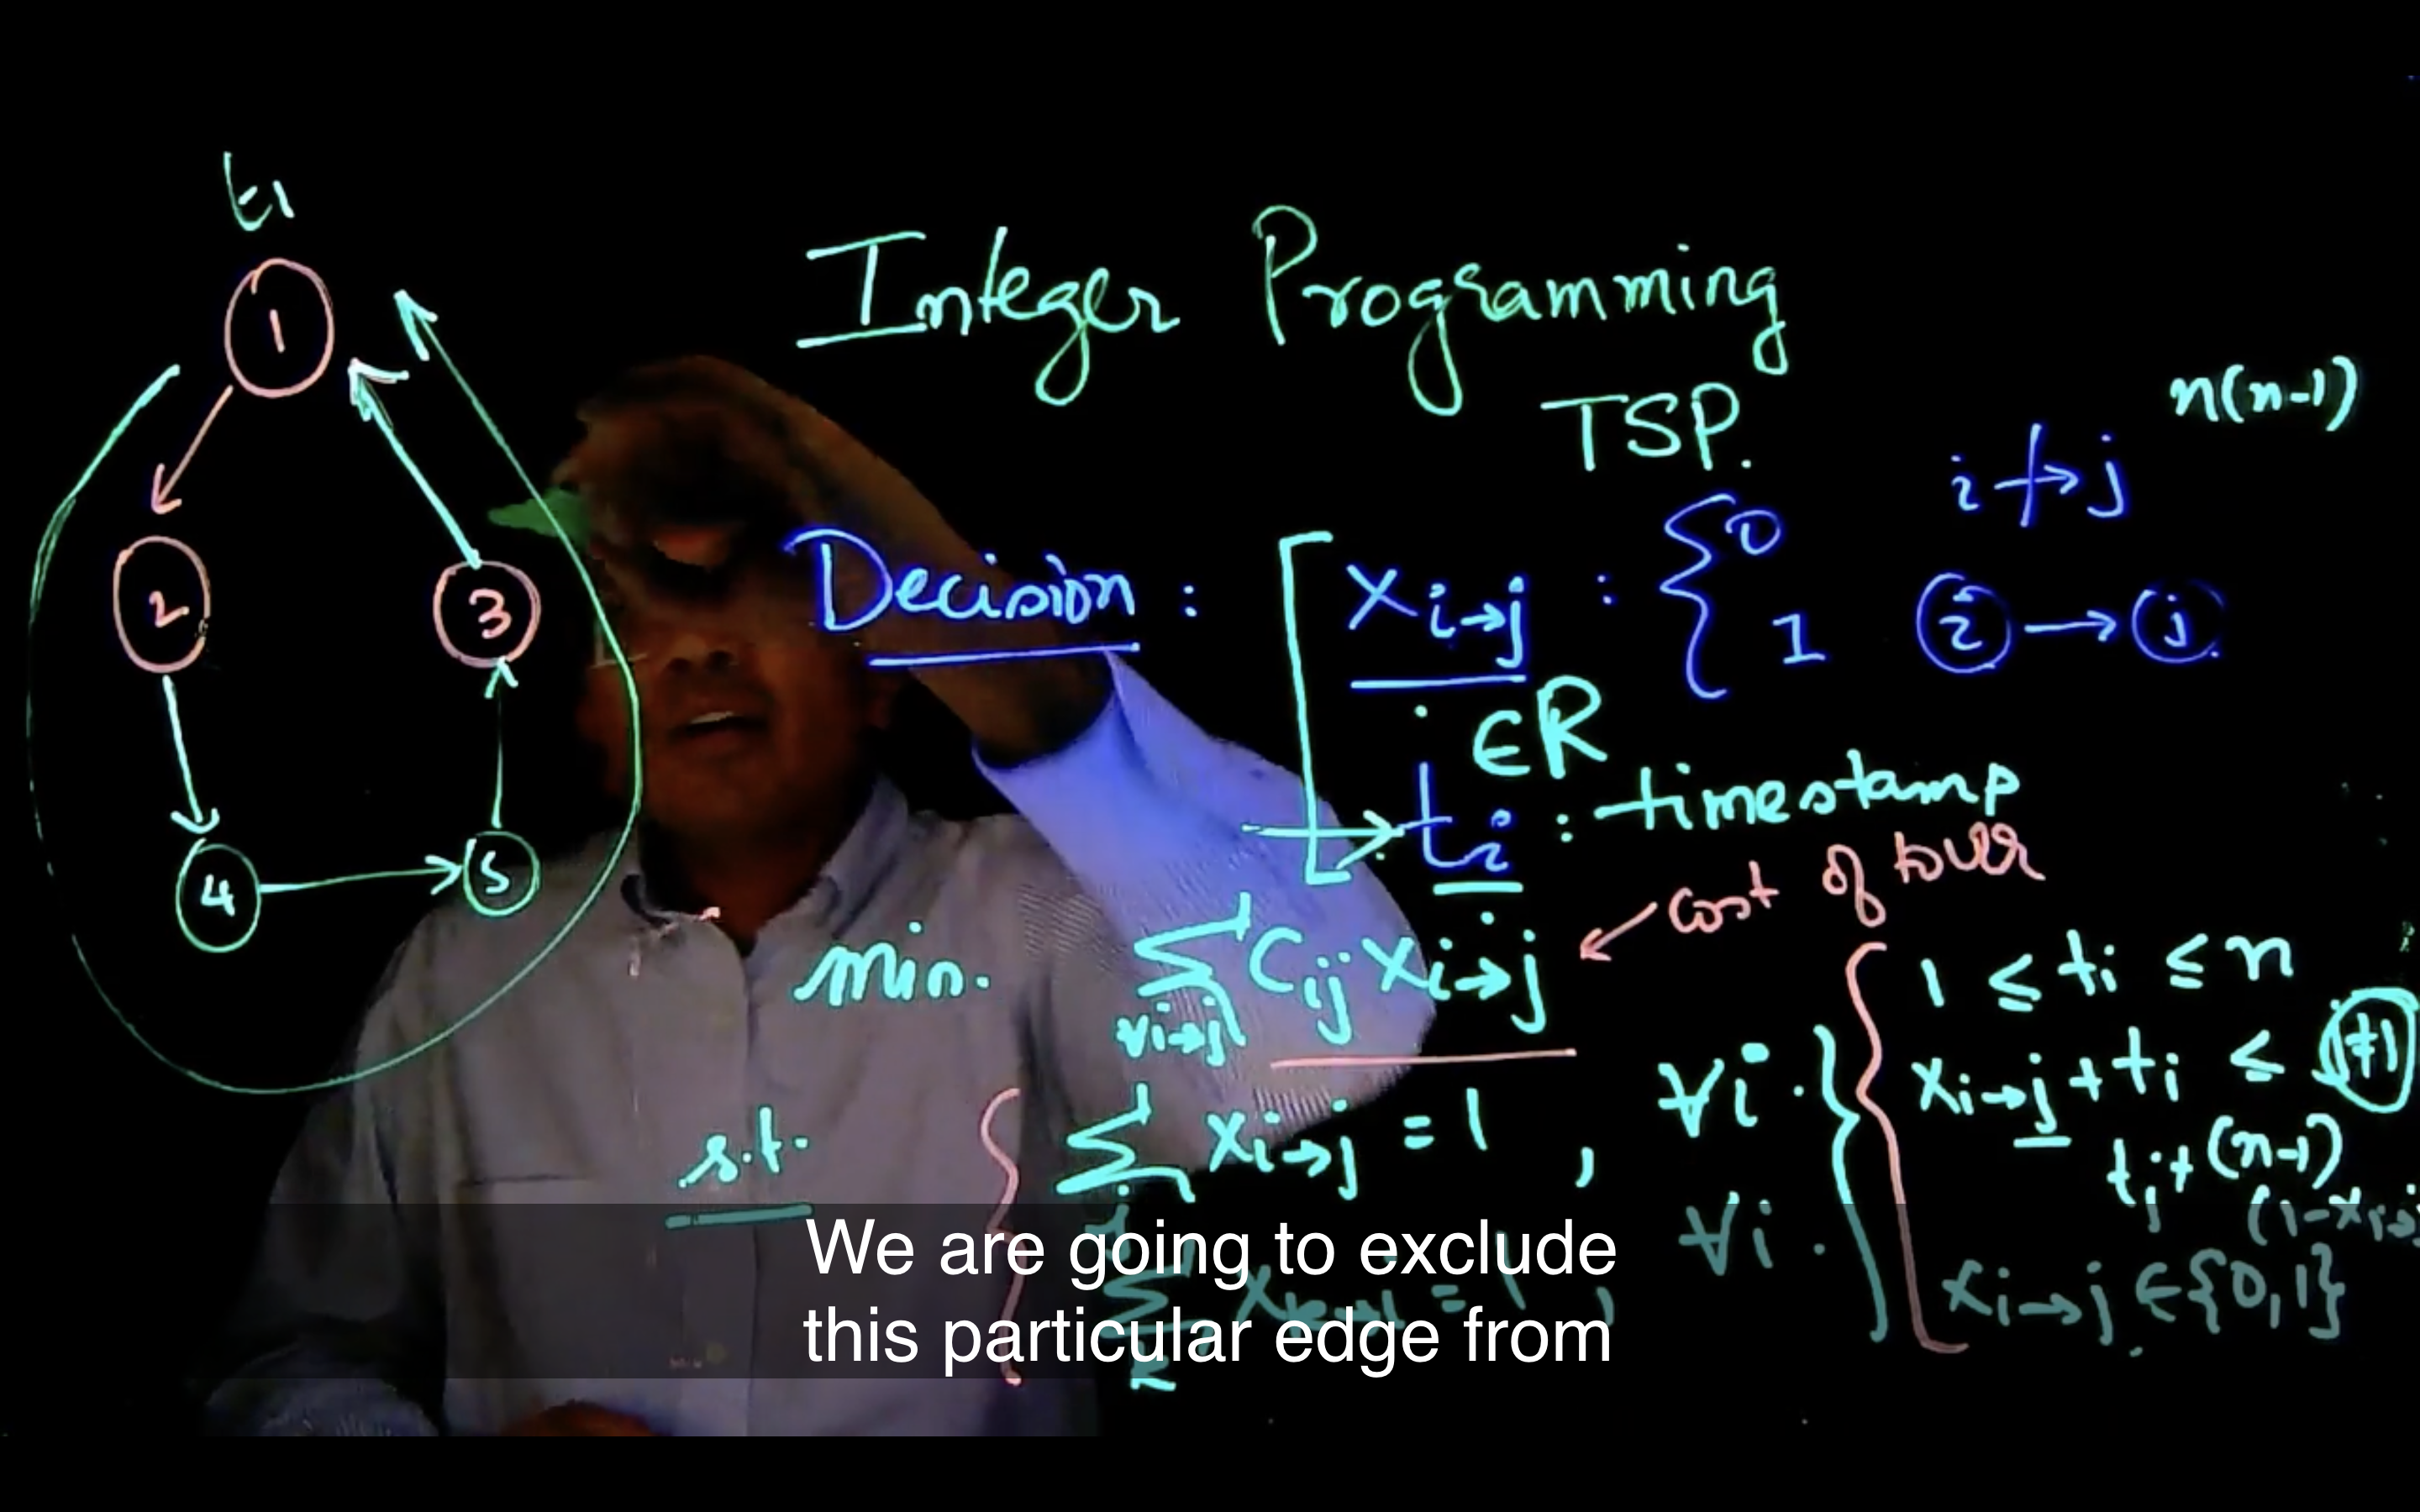 t1
1
2
3
4
5
Integer Programming
TSP.
n(n-1)
Decision : xi→j : { 0 i↛j
1 i → j
∈R
ti : timestamp
cost of tour
min. ∑ Cij xi→j
∀i→j
s.t. ∑ xi→j = 1 , ∀i.
j
= 1 , ∀i.
1 ≤ ti ≤ n
xi→j + ti ≤
tj + (n-1)
(1-xi→j
xi→j ∈ {0,1}
We are going to exclude
this particular edge from